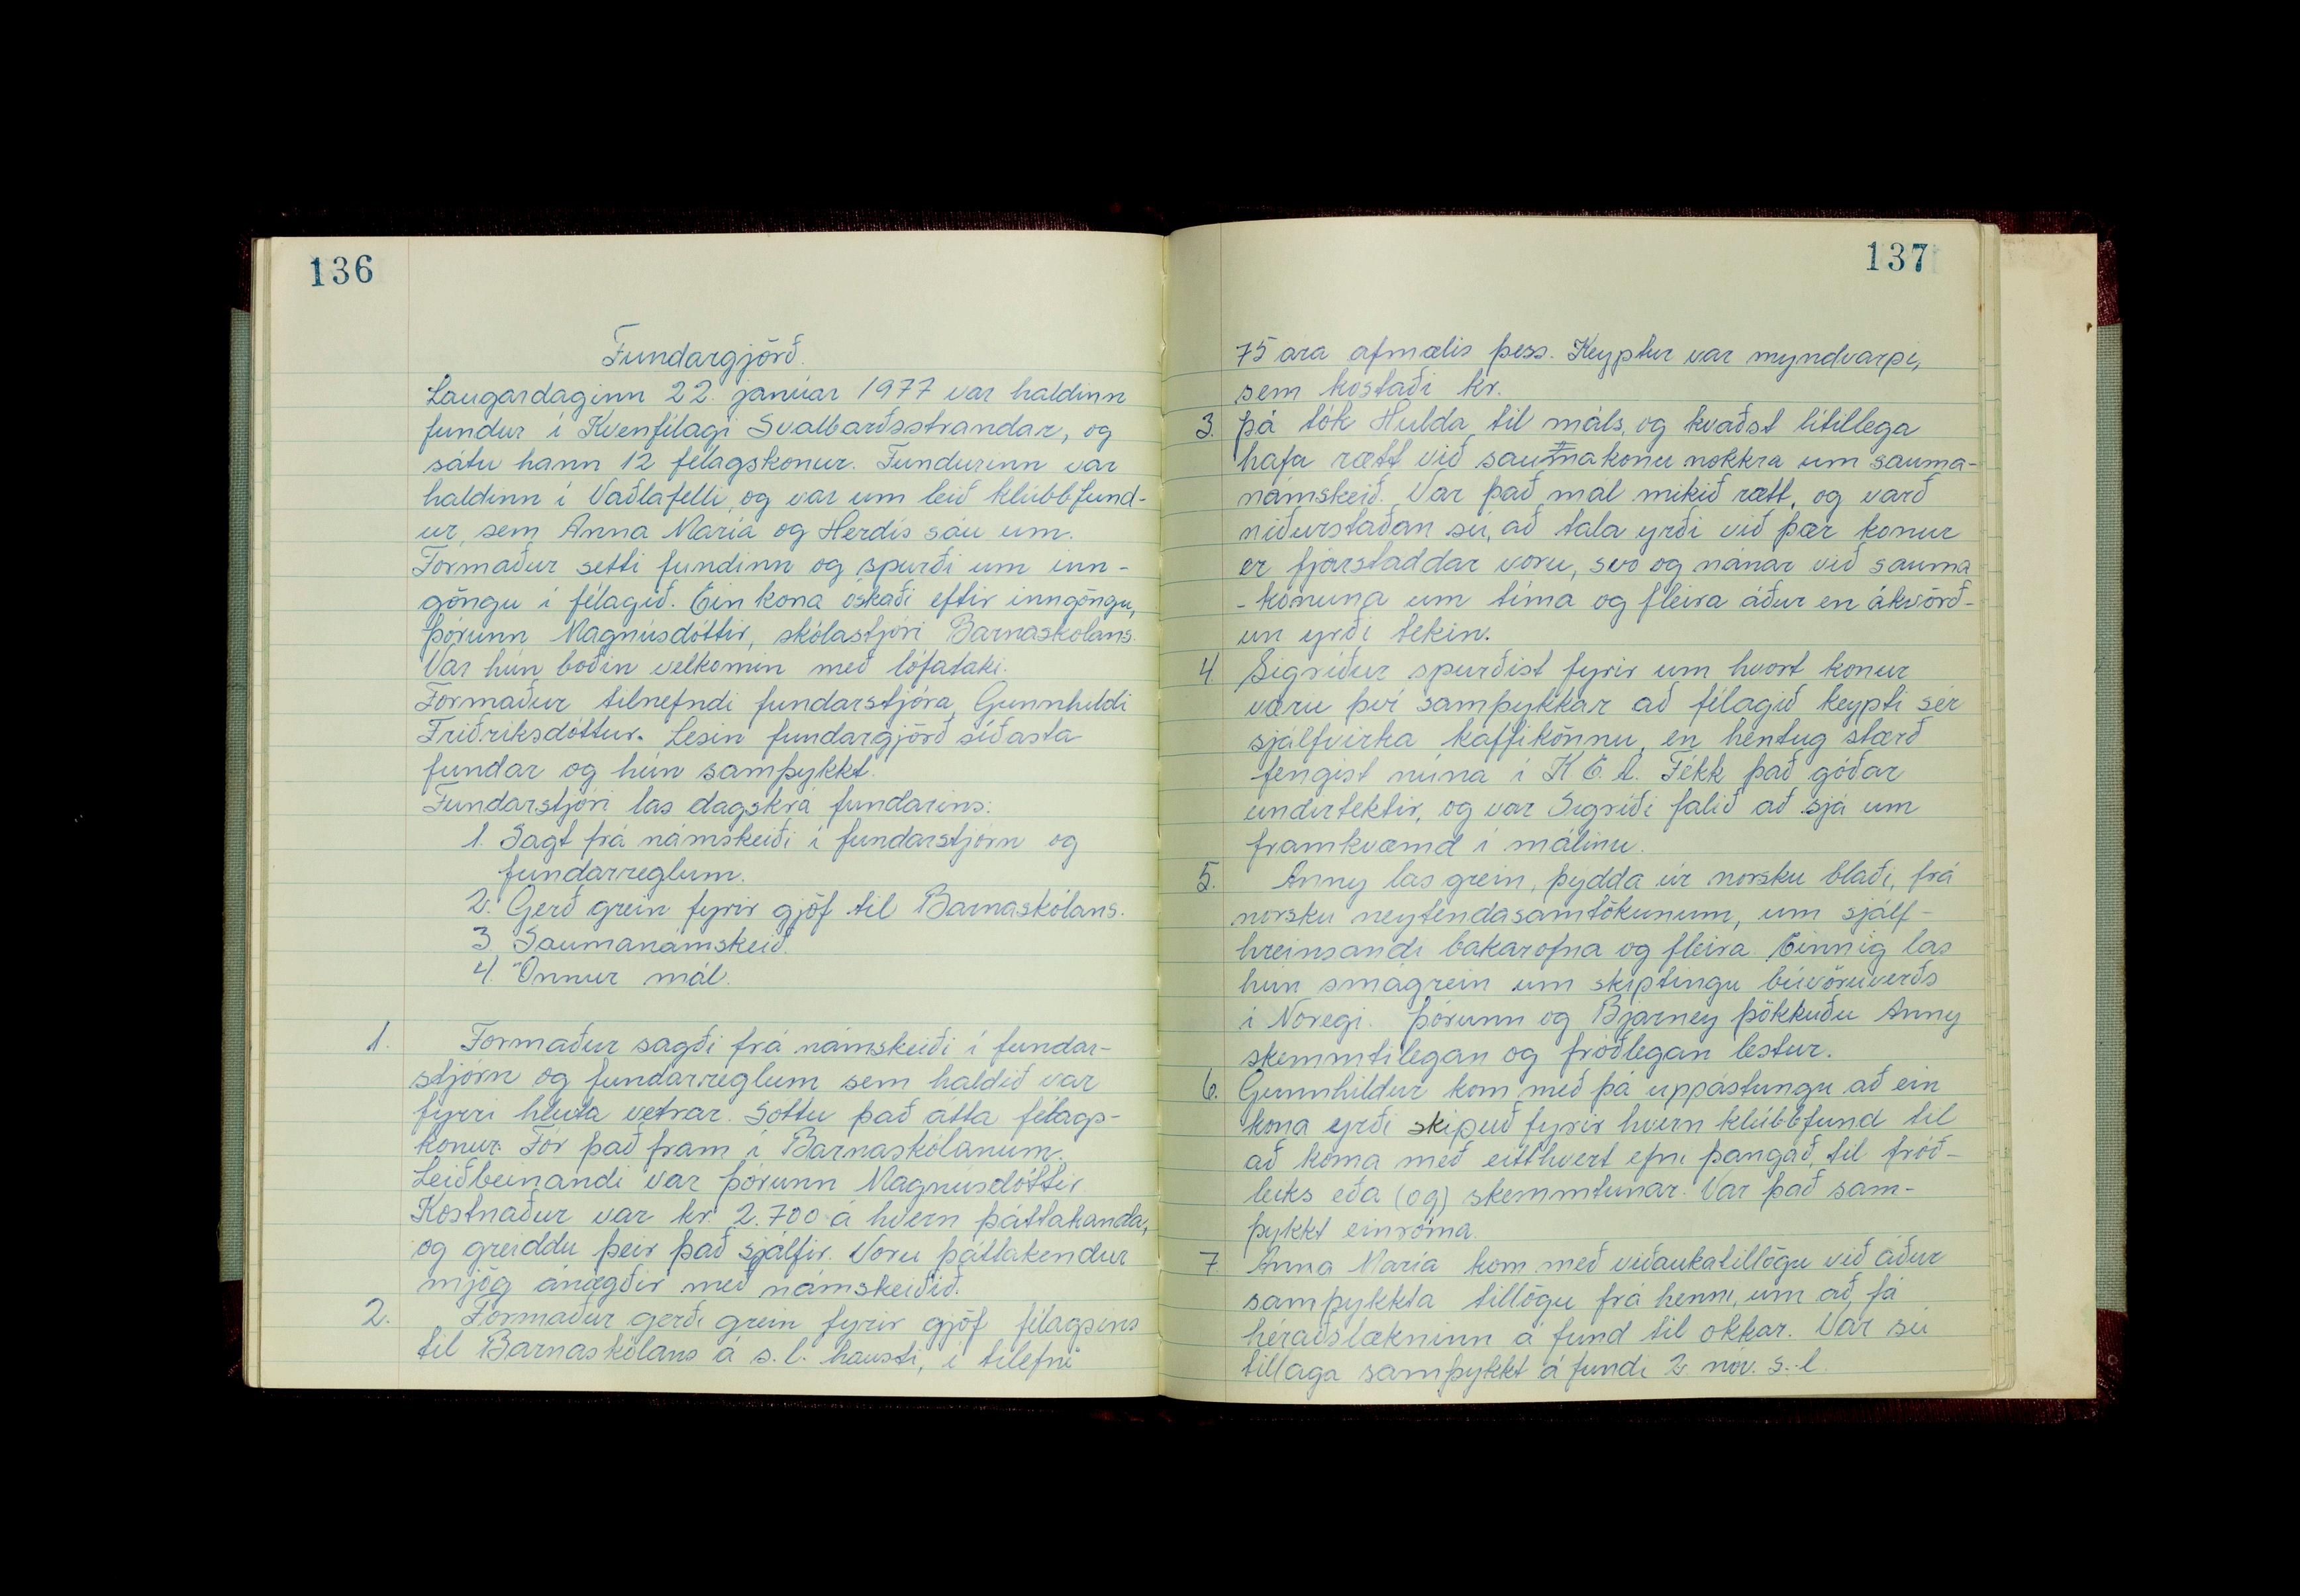 136
Fundargjörð.
Laugardaginn 22. janúar 1977 var haldinn
fundur í Kvenfélagi Svalbarðsstrandar, og
sátu hann 12 félagskonur. Fundurinn var
haldinn í Vaðlafelli, og var um leið klúbbfund-
ur, sem Anna María og Herdís sáu um.
Formaður setti fundinn og spurði um inn-
göngu í félagið. Ein kona óskaði eftir inngöngu,
Þórunn Magnúsdóttir, skólastjóri Barnaskólans.
Var hún boðin velkomin með lófataki.
Formaður tilnefndi fundarstjóra, Gunnhildi
Friðriksdóttur. Lesin fundargjörð síðasta
fundar og hún samþykkt.
Fundarstjóri las dagskrá fundarins:
1. Sagt frá námskeiði í fundarstjórn og
fundarreglum.
2. Gerð grein fyrir gjöf til Barnaskólans.
3. Saumanámskeið.
4. Önnur mál.
1. Formaður sagði frá námskeiði í fundar-
stjórn og fundarreglum sem haldið var
fyrri hluta vetrar. Sóttu það átta félags-
konur. Fór það fram í Barnaskólanum.
Leiðbeinandi var Þórunn Magnúsdóttir
Kostnaður var kr. 2.700 á hvern þáttakanda,
og greiddu þeir það sjálfir. Voru þáttakendur
mjög ánægðir með námskeiðið.
2. Formaður gerði grein fyrir gjöf félagsins
til Barnaskólans á s.l. hausti, í tilefni
137
75 ára afmælis þess. Keyptur var myndvarpi,
sem kostaði kr.
3. Þá tók Hulda til máls, og kvaðst lítillega
hafa rætt við saumakonu nokkra um sauma-
námskeið. Var það mál mikið rætt, og varð
niðurstaðan sú, að tala yrði við þær konur
er fjarstaddar voru, svo og nánar við sauma
-konuna um tíma og fleira áður en ákvörð-
un yrði tekin.
4 Sigríður spurðist fyrir um hvort konur
væru því samþykkar að félagið keypti sér
sjálfvirka kaffikönnu, en hentug stærð
fengist núna í K.E.A. Fékk það góðar
undirtektir, og var Sigríði falið að sjá um
framkvæmd í málinu.
5. Anny las grein, þýdda úr norsku blaði, frá
norsku neytendasamtökunum, um sjálf-
hreinsandi bakarofna og fleira. Einnig las
hún smágrein um skiptingu búvöruverðs
í Noregi. Þórunn og Bjarney þökkuðu Anny
skemmtilegan og fróðlegan lestur.
6. Gunnhildur kom með þá uppástungu að ein
kona yrði skipuð fyrir hvern klúbbfund til
að koma með eitthvert efni þangað, til fróð-
leiks eða (og) skemmtunar. Var það sam-
þykkt einróma.
7 Anna María kom með viðaukatillögu við áður
samþykkta tillögu frá henni, um að fá
héraðslækninn á fund til okkar. Var sú
tillaga samþykkt á fundi 2. nóv. s.l.